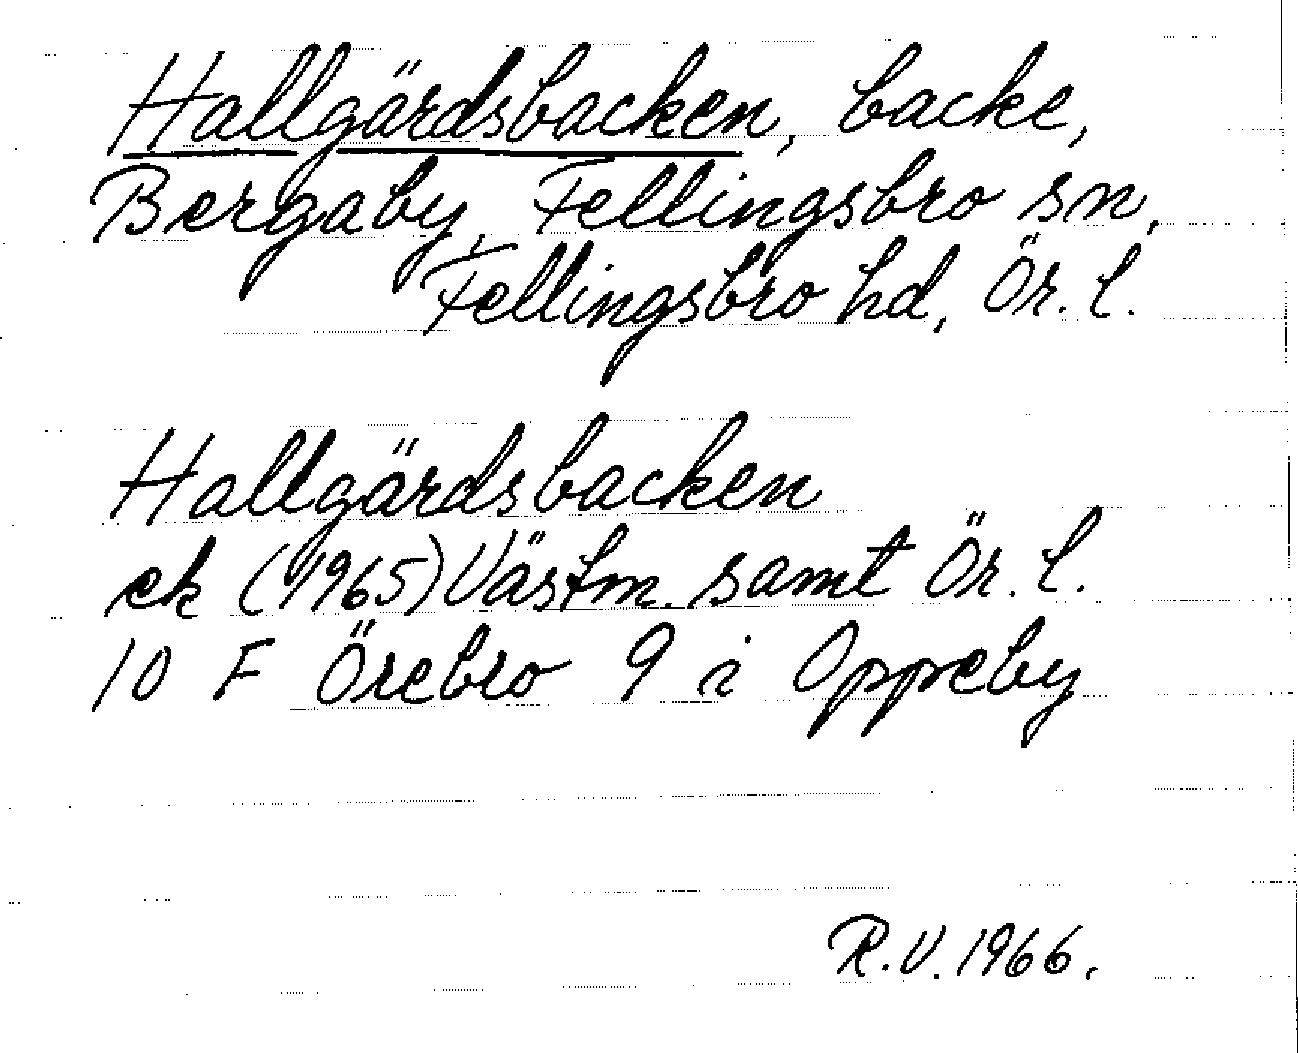 Hallgärdsbacken, backe,
Bergaby, Fellingsbro sn,
Fellingsbro hd, Ör. l.
Hallgärdsbacken
ek (1965) Västm. samt Ör. l.
10 F Örebro 9 i Oppeby
R.V. 1966.